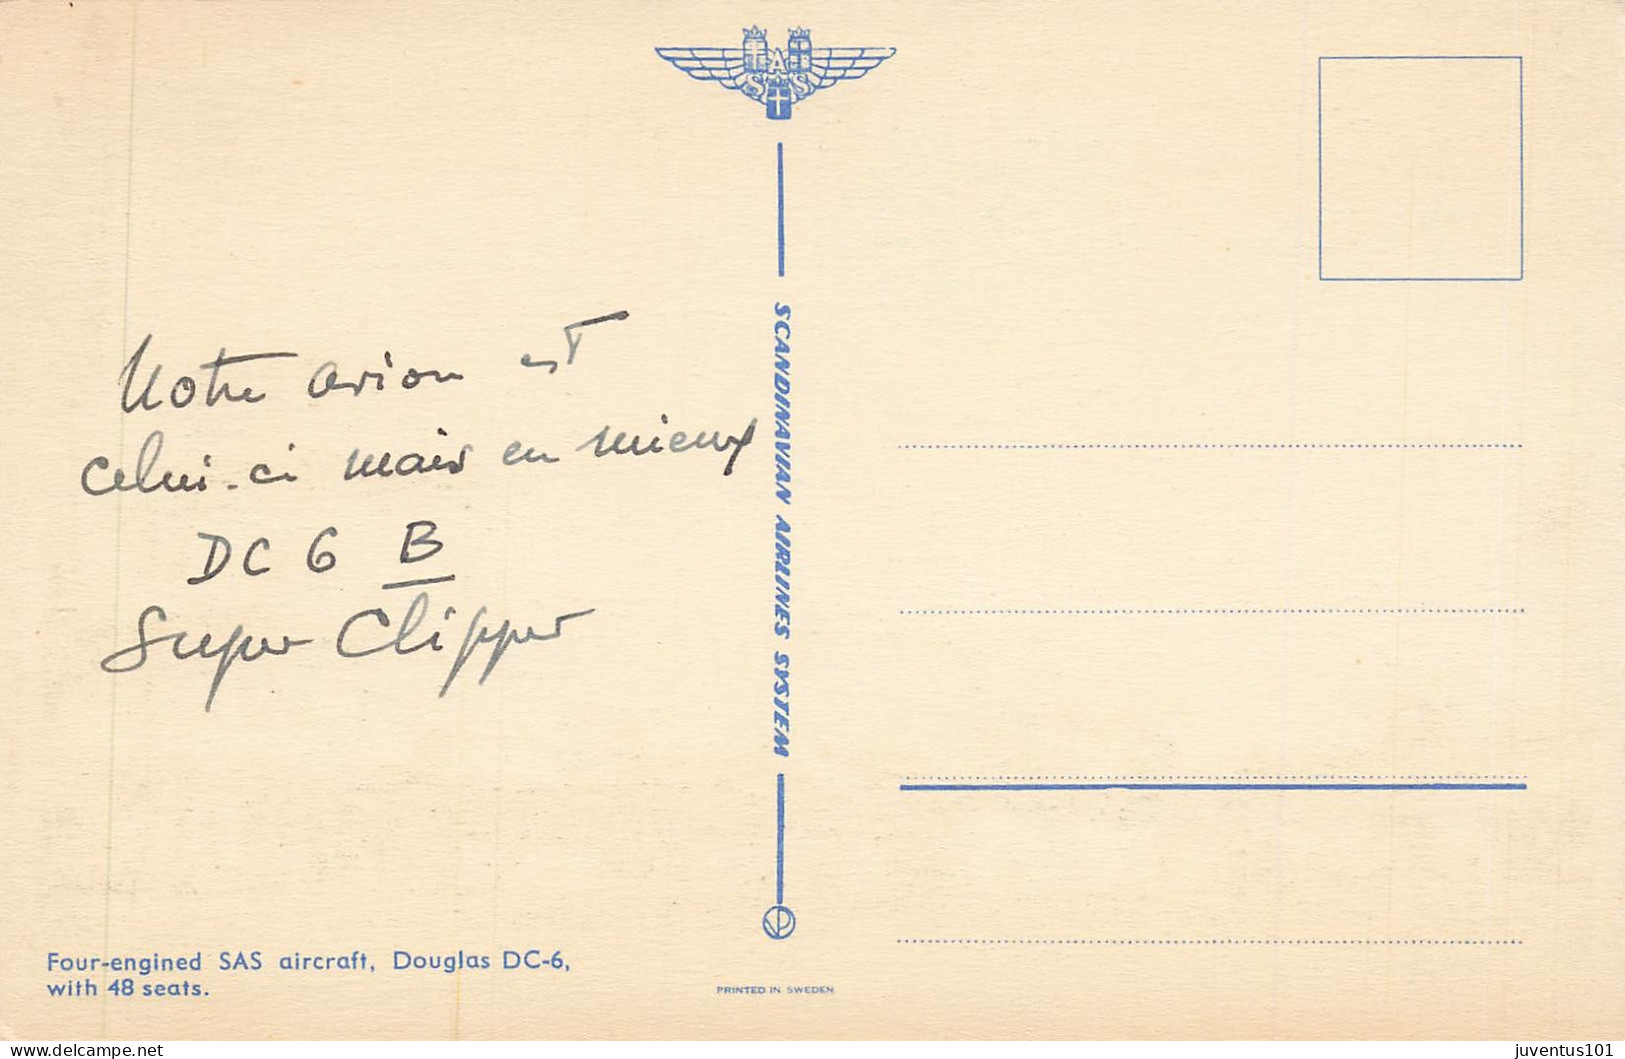 SAS
SCANDINAVIAN AIRLINES SYSTEM
Notre avion est
celui-ci mais en mieux
DC 6 B
Super Clipper
Four-engined SAS aircraft, Douglas DC-6,
with 48 seats.
PRINTED IN SWEDEN
delcampe.net
juventus101